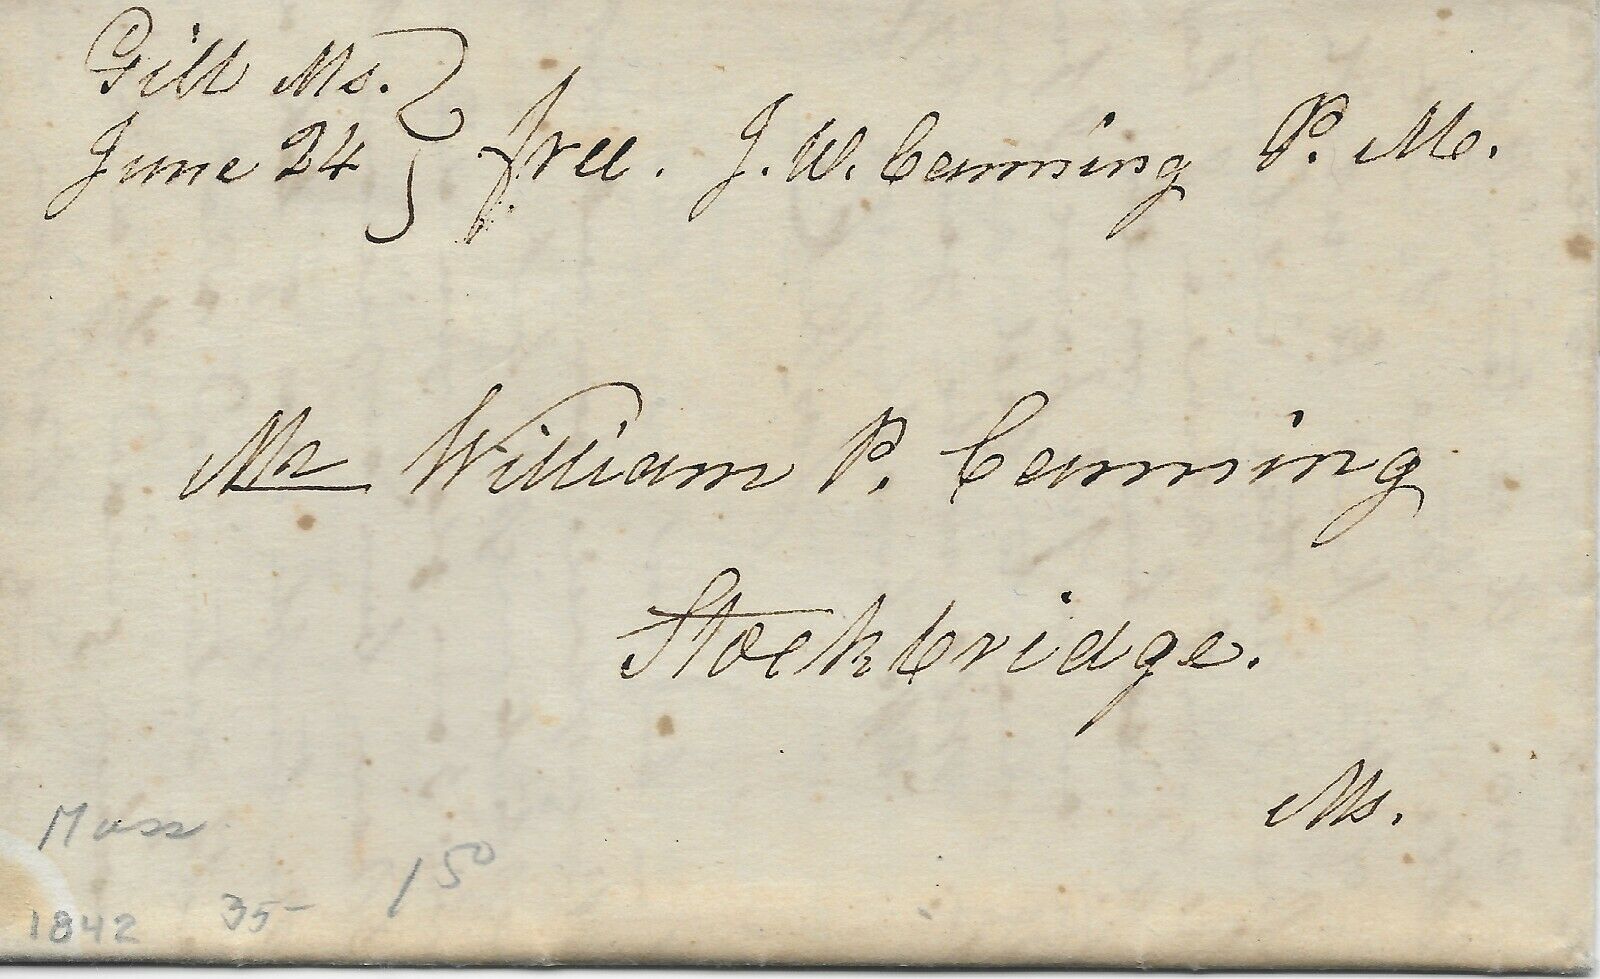 Gill Ms.
June 24 } free. J. W. Canning P. M.
Mr William P. Canning
Stockbridge.
Ms.
Mass
1842 35- 150